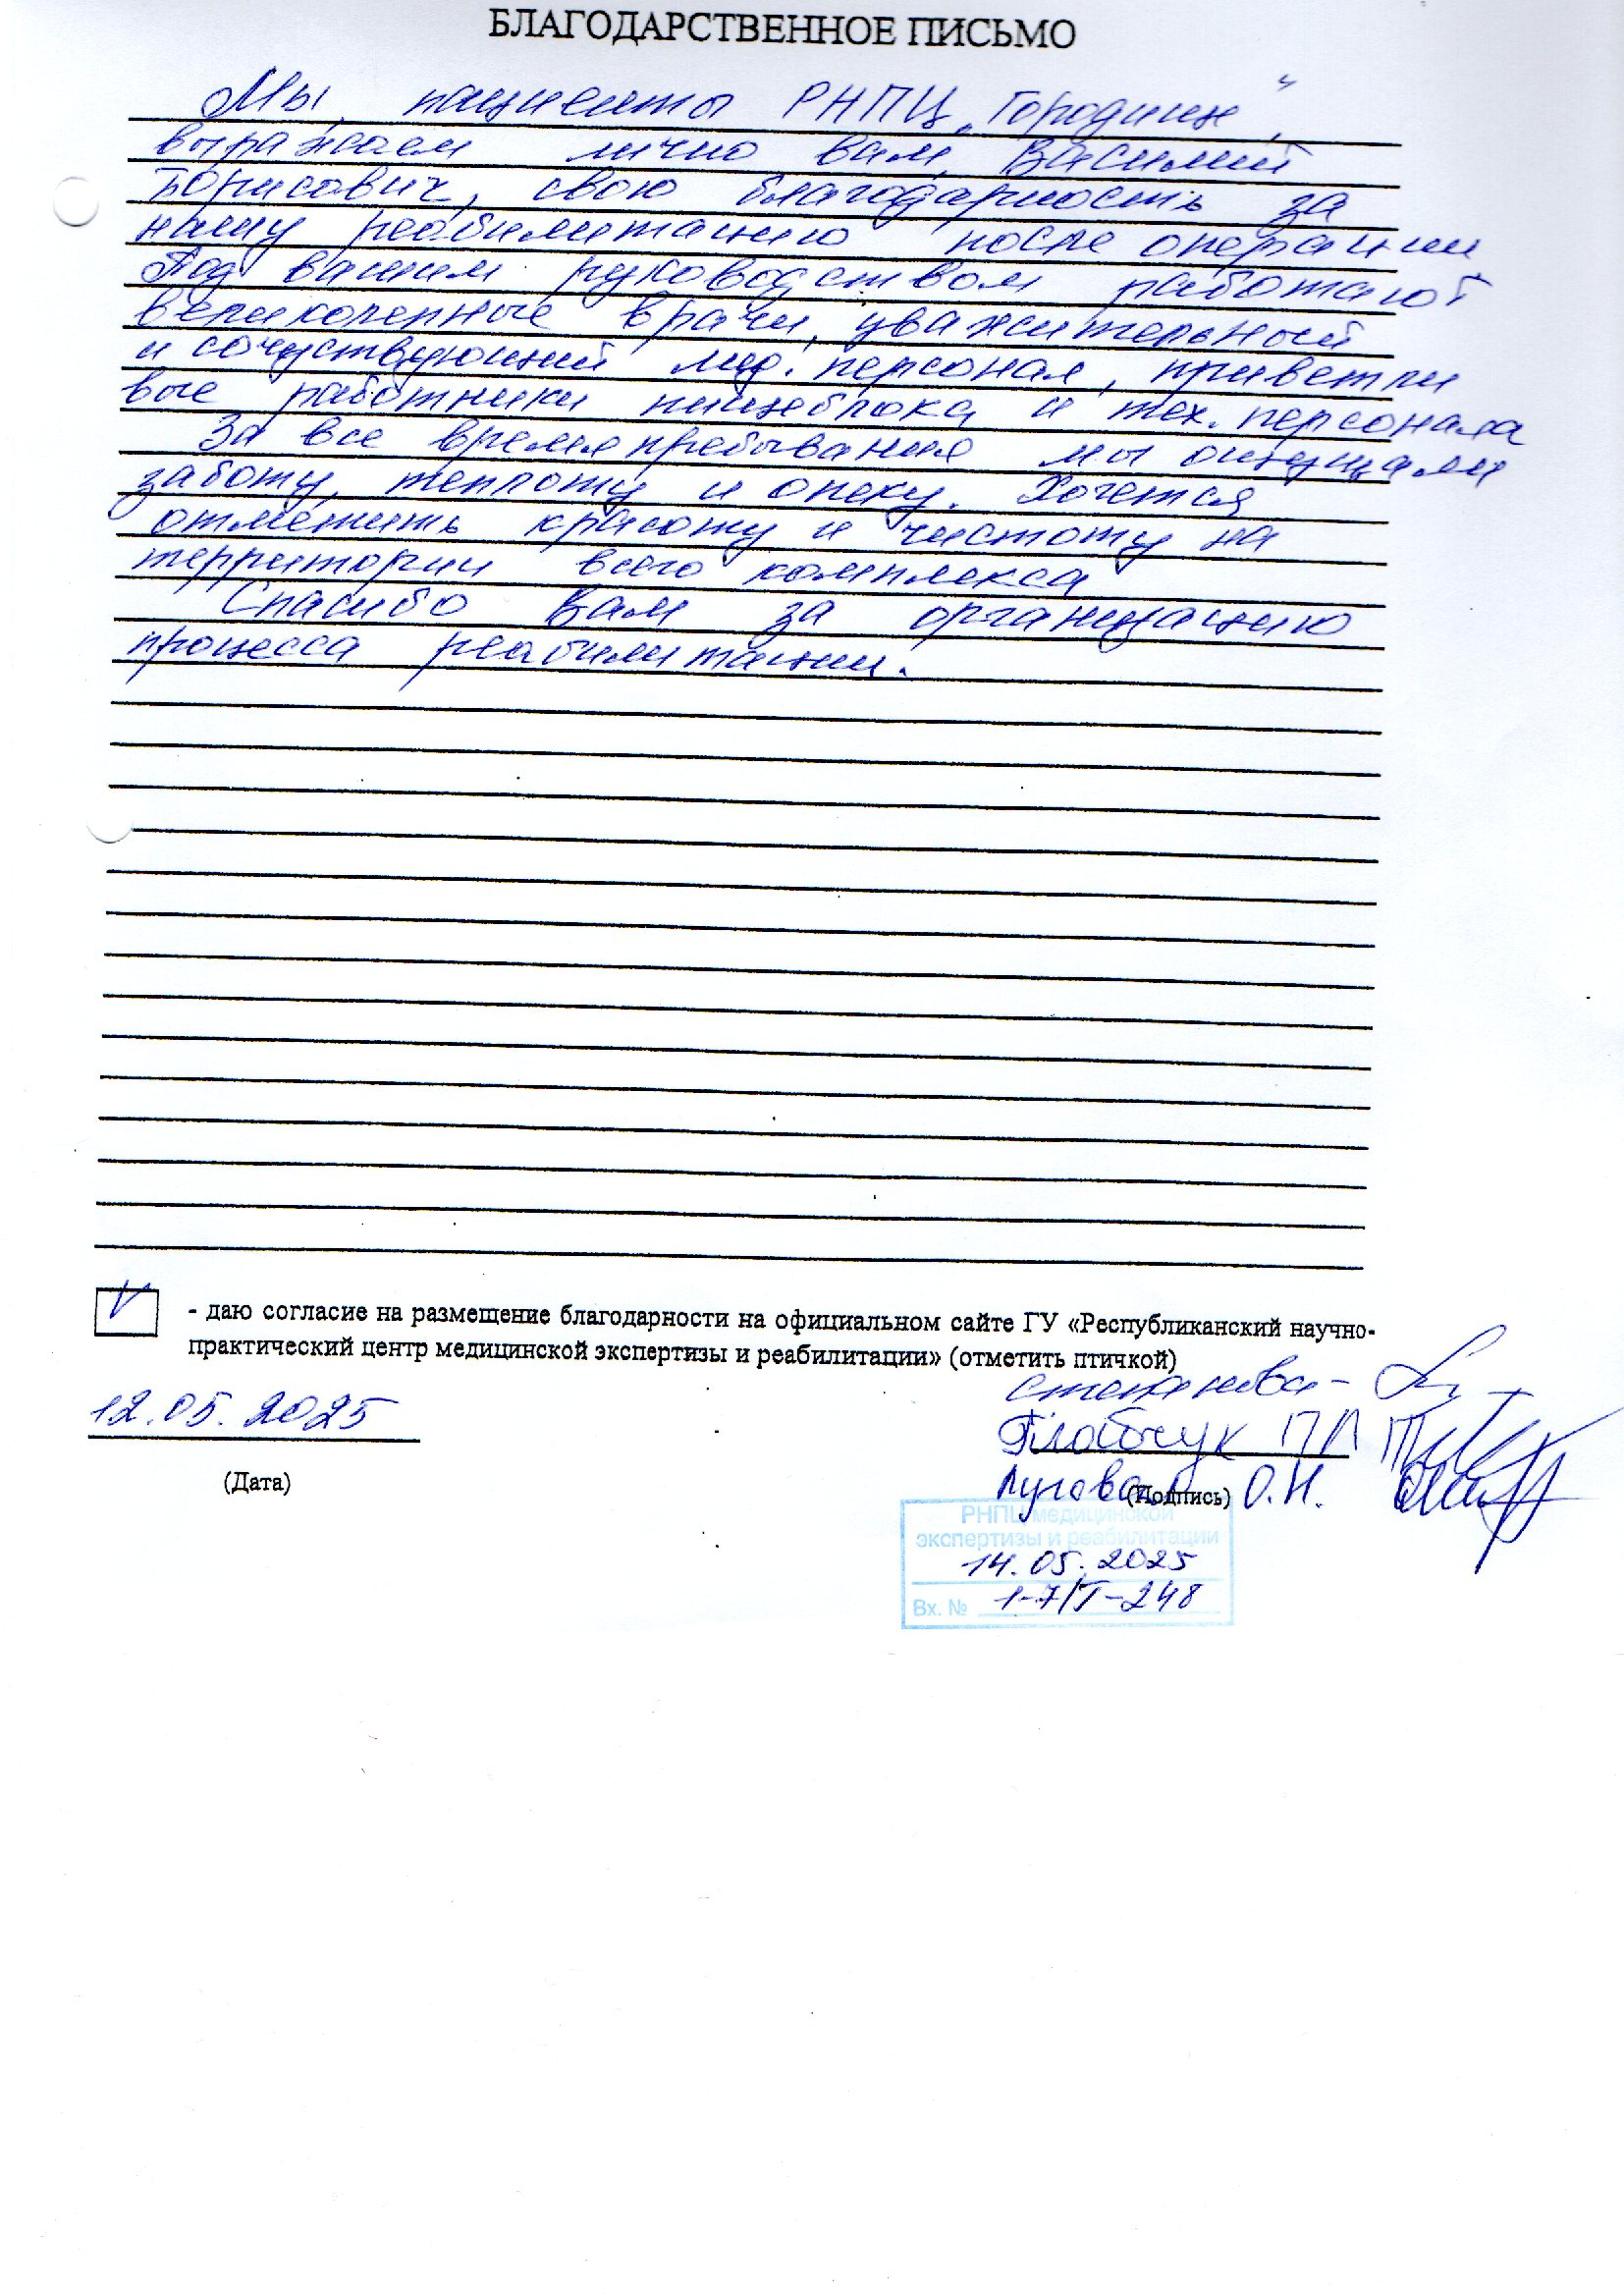 БЛАГОДАРСТВЕННОЕ ПИСЬМО
Мы, пациенты РНПЦ „Городище“,
выражаем лично вам, Василий
Борисович, свою благодарность за
нашу реабилитацию после операции
Под вашим руководством работают
великолепные врачи, уважительный
и сочуствующий мед. персонал, приветли
вые работники пищеблока и тех. персонала
За все время пребывания мы ощущали
заботу, теплоту и опеку. Хочется
отметить красоту и чистоту на
территории всего комплекса
Спасибо Вам за организацию
процесса реабилитации.
V - даю согласие на размещение благодарности на официальном сайте ГУ «Республиканский научно-
практический центр медицинской экспертизы и реабилитации» (отметить птичкой)
Степанова -
12.05.2025
(Дата)
(Подпись) О.Н.
РНПЦ медицинской
экспертизы и реабилитации
14.05.2025
Вх. № 1-7/Т-248